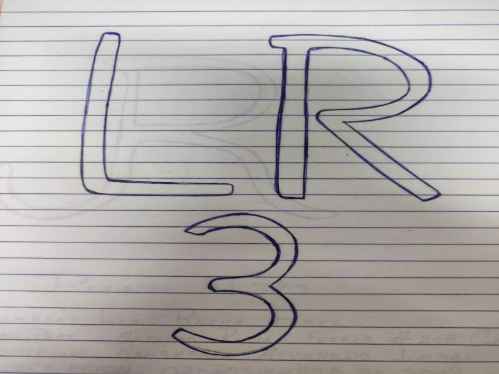 LR
3